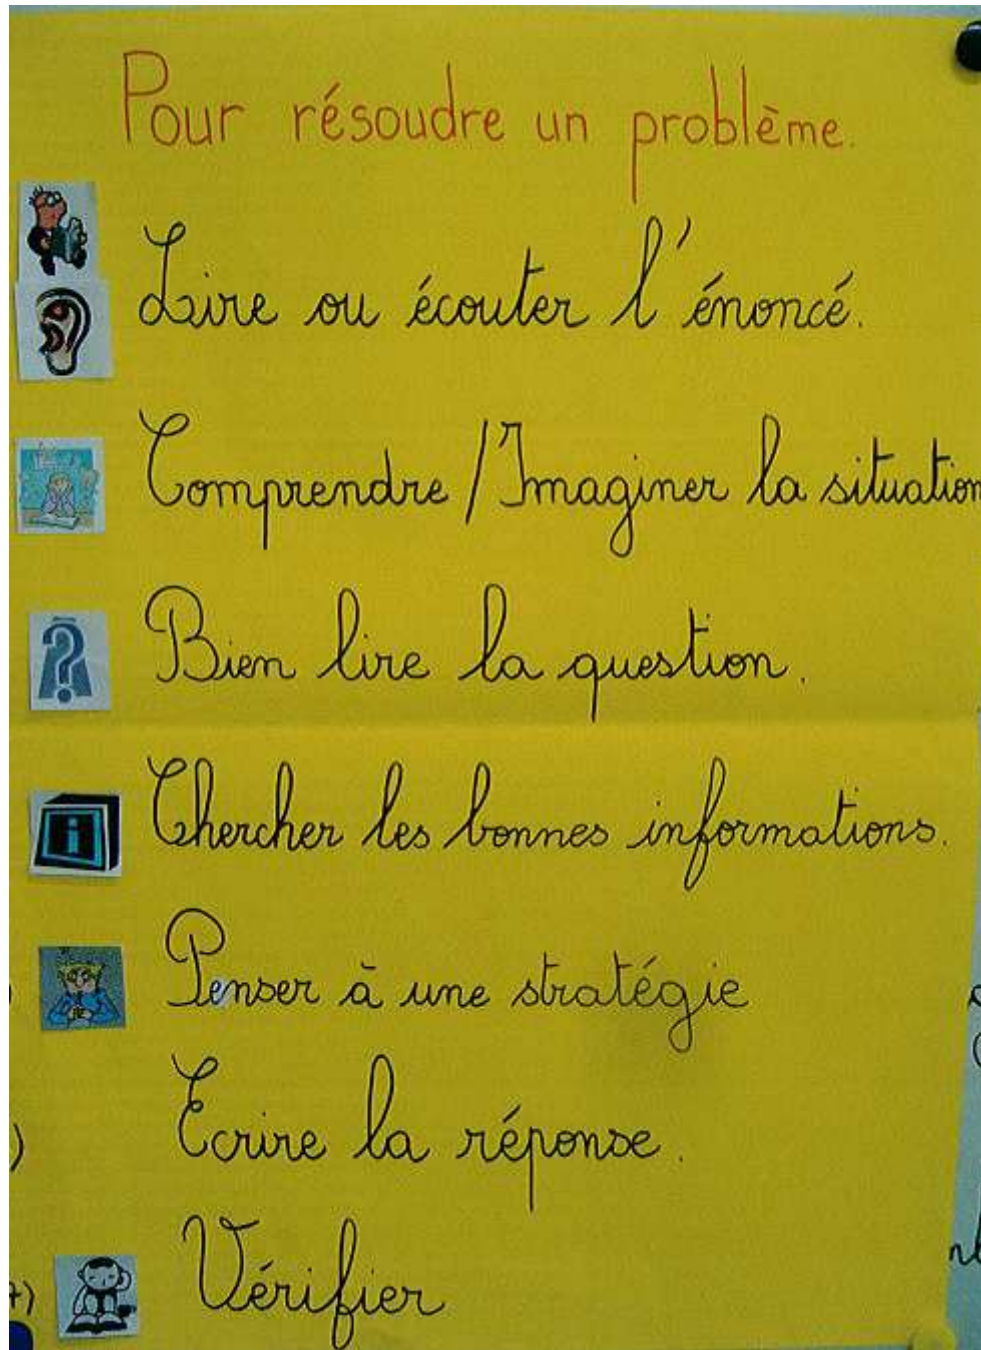 Pour résoudre un problème.
Lire ou écouter l'énoncé.
Comprendre / Imaginer la situation
Bien lire la question.
i
Chercher les bonnes informations.
Penser à une stratégie
Ecrire la réponse.
7) Vérifier